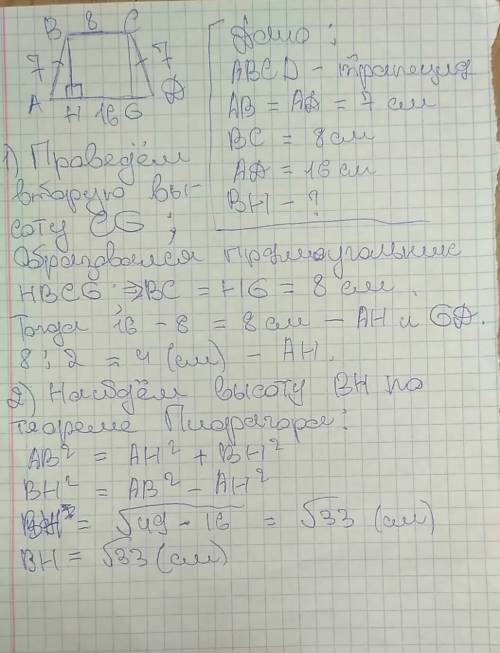 B 8 C
7 7
A H 16 G D
Дано:
ABCD - трапеция
AB = AD = 7 см
BC = 8 см
AD = 16 см
BH - ?
1) Проведём
вторую вы-
соту CG ;
Образовался прямоугольник
HBCG ⇒ BC = HG = 8 см
Тогда 16 - 8 = 8 см - AH и GD.
8 : 2 = 4 (см) - AH.
2) Найдём высоту BH по
теореме Пифагора:
AB² = AH² + BH²
BH² = AB² - AH²
= √49 - 16 = √33 (см)
BH = √33 (см)